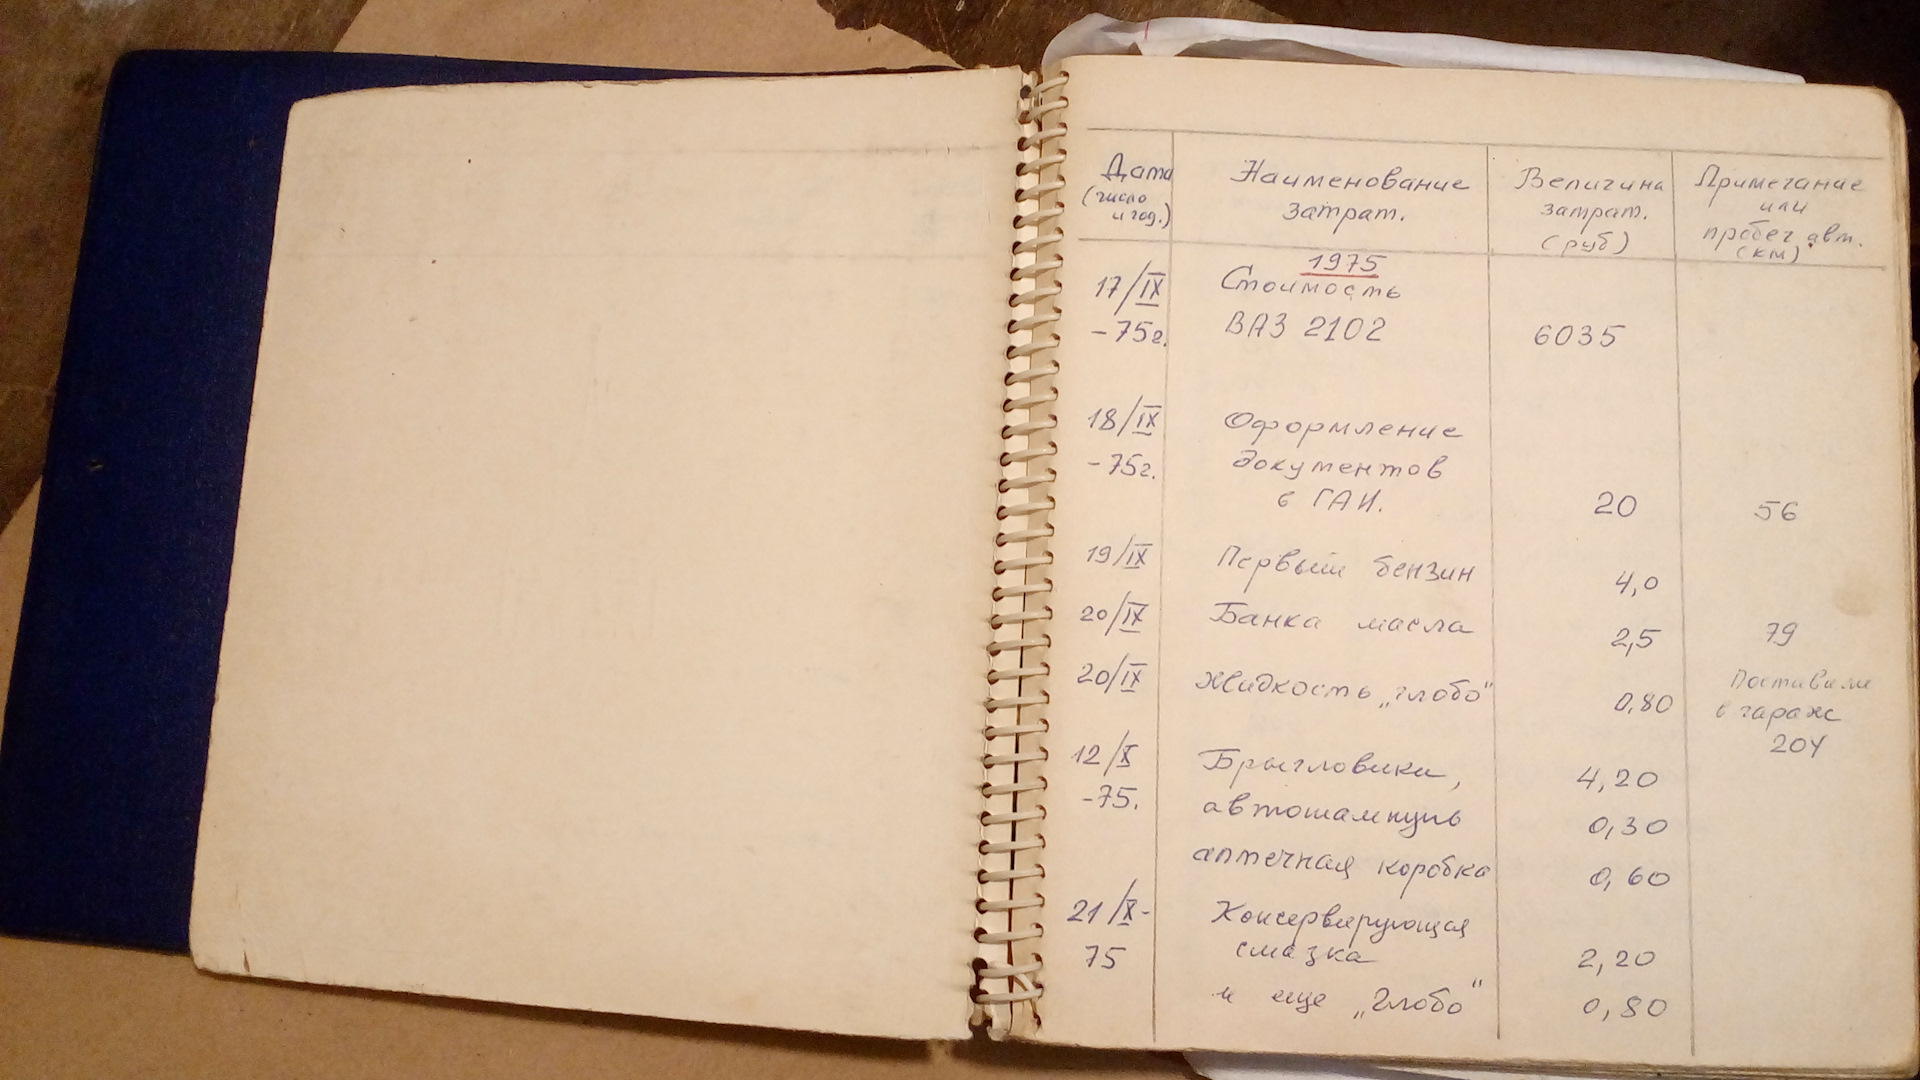 Дата Наименование Величина Примечание
(число затрат. затрат. или
и год.) (руб) пробег авт.
(км)
1975
17/IX Стоимость
-75г. ВАЗ 2102 6035
18/IX Оформление
-75г. документов
в ГАИ. 20 56
19/IX Первый бензин 4,0
20/IX Банка масла 2,5 79
20/IX Жидкость „глобо“ 0,80 Поставили
в гараж
204
12/X Брызговики, 4,20
-75. автошампунь 0,30
аптечная коробка 0,60
21/X- Консервирующая
75 смазка 2,20
и еще „Глобо“ 0,80